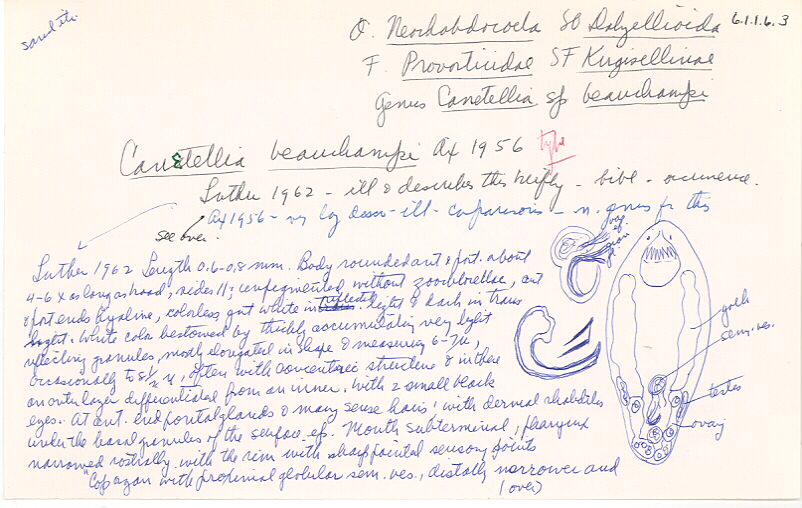 sand etc.
O. Neorhabdocoela SO Dalyellioida 6.1.1.6.3
F. Provorticidae SF Kirgisellinae
Genus Canetellia sp beauchampi
Canetellia beauchampi Ax 1956 type
Luther 1962 - ill & describes this briefly - bibl - occurrence.
Ax 1956 - long descr - ill - comparisons - n. genus for this
see over.
Luther 1962 Length 0.6-0.8 mm. Body rounded ant & post. about
4-6 x as long as broad, sides //; unpigmented without zoochlorellae, ant
& post ends hyaline, colorless, gut white in reflected light & dark in trans
light. White color bestowed by thickly accumulating very light
reflecting granules, mostly elongated in shape & measuring 6-7µ,
occasionally to often with concentric structure & in these
an outer layer differentiated from an inner. With 2 small black
eyes. At ant. end frontal glands & many sense hairs; with dermal rhabdites
under the basal granules of the surface ep. Mouth subterminal, pharynx
narrowed rostrally with the rim with sharp pointed sensory points
"Cop organ with proximal globular sem. ves., distally narrower and
(over)
vag.
gran
gl.
yolk
sem. ves.
testes
ovary